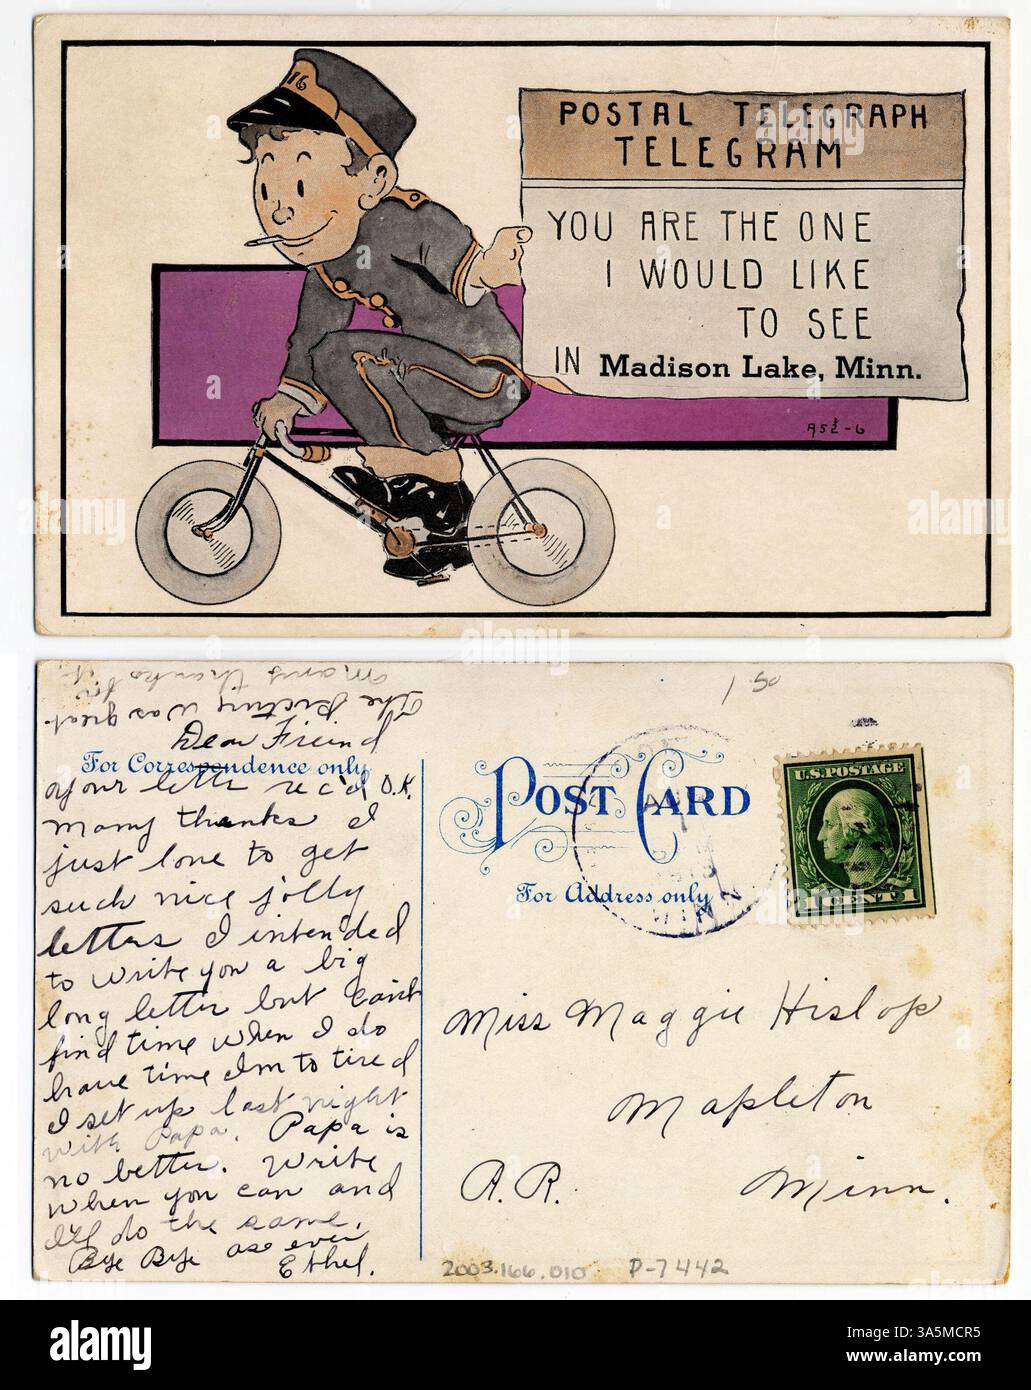 16
POSTAL TELEGRAPH
TELEGRAM
YOU ARE THE ONE
I WOULD LIKE
TO SEE
IN Madison Lake, Minn.
A52-6
Many thanks for it.
The picture was great.
Dear Friend
For Correspondence only
Your letter rec'd O.K.
Many thanks I
just love to get
such nice jolly
letters I intended
to write you a big
long letter but can't
find time when I do
have time Im to tired
I set up last night
with Papa. Papa is
no better. Write
when you can and
I'll do the same.
Bye Bye as ever
Ethel.
1 50
POST CARD
For Address only
MINN
U.S. POSTAGE
1 CENT 1
Miss Maggie Hislop
Mapleton
R. R. Minn.
2003.166.010 P-7442
alamy
Image ID: 3A5MCR5
www.alamy.com